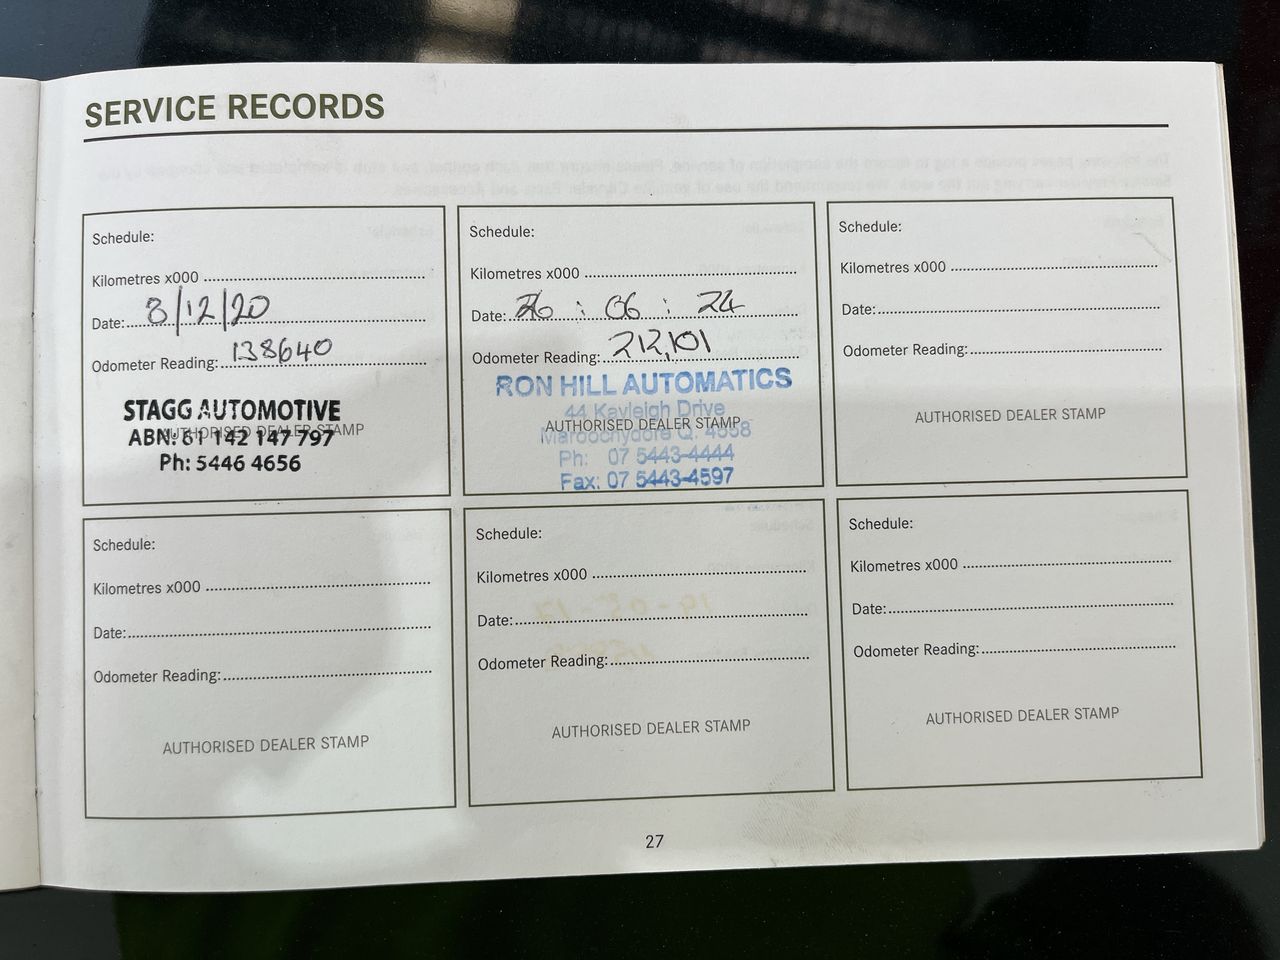 SERVICE RECORDS
Schedule:
Kilometres x000
Date: 8/12/20
Odometer Reading: 138640
STAGG AUTOMOTIVE
AUTHORISED DEALER STAMP
ABN: 61 142 147 797
Ph: 5446 4656
Schedule:
Kilometres x000
Date: 26 : 06 : 24
Odometer Reading: 212,101
RON HILL AUTOMATICS
44 Kayleigh Drive
AUTHORISED DEALER STAMP
Maroochydore Q. 4558
Ph: 07 5443-4444
Fax: 07 5443-4597
Schedule:
Kilometres x000
Date:
Odometer Reading:
AUTHORISED DEALER STAMP
Schedule:
Kilometres x000
Date:
Odometer Reading:
AUTHORISED DEALER STAMP
Schedule:
Kilometres x000
Date:
Odometer Reading:
AUTHORISED DEALER STAMP
Schedule:
Kilometres x000
Date:
Odometer Reading:
AUTHORISED DEALER STAMP
27